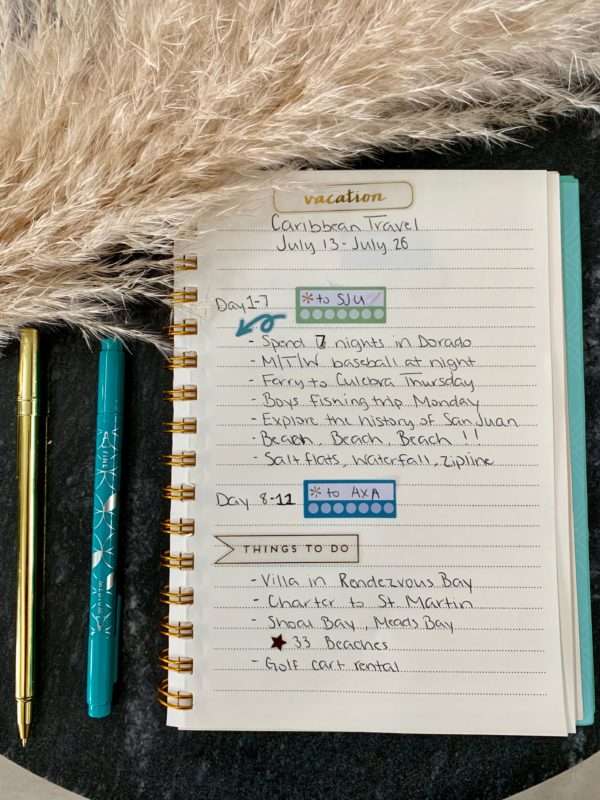 vacation
Caribbean Travel
July 13 - July 26
Day 1-7 * to SJU
- Spend 7 nights in Dorado
- M/T/W baseball at night
- Ferry to Culebra Thursday
- Boys fishing trip Monday
- Explore the history of San Juan
- Beach, Beach, Beach !!
- Salt flats, Waterfall, Zipline
Day 8-11 * to AXA
THINGS TO DO
- Villa in Rendezvous Bay
- Charter to St. Martin
- Shoal Bay, Meads Bay
★ 33 Beaches
- Golf cart rental